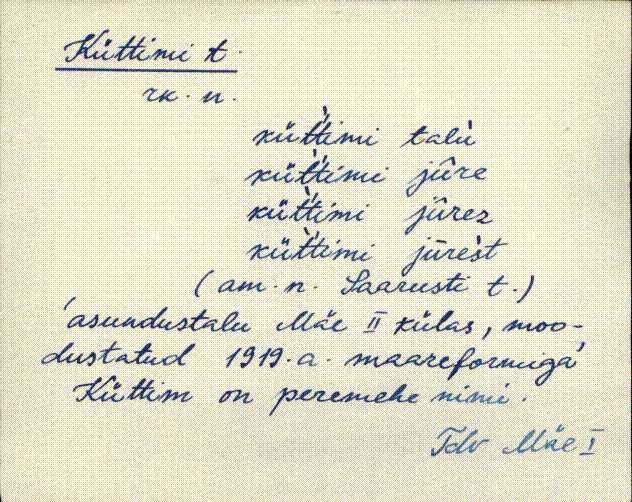 Küttimi t.
rk. n.
küt̀timi talù
küt̀timi jûre
küt̀timi jûrez
küt̀timi jūrèst
(am. n. Saarusti t.)
'asundustalu Mäe II külas, moo-
dustatud 1919. a. maareformiga'
Küttim on peremehe nimi.
Tdv Mäe I